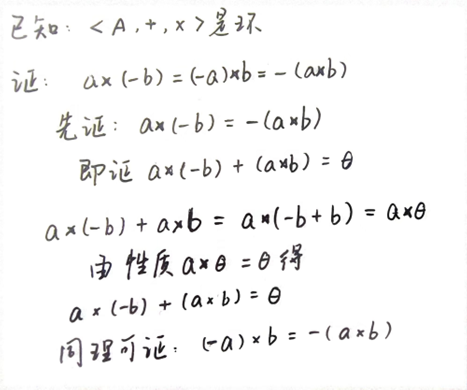 已知: <A,+,×>是环
证: a×(-b)=(-a)×b=-(a×b)
先证: a×(-b)=-(a×b)
即证 a×(-b)+(a×b)=θ
a×(-b)+a×b=a×(-b+b)=a×θ
由 性质a×θ=θ得
a×(-b)+(a×b)=θ
同理可证: (-a)×b=-(a×b)